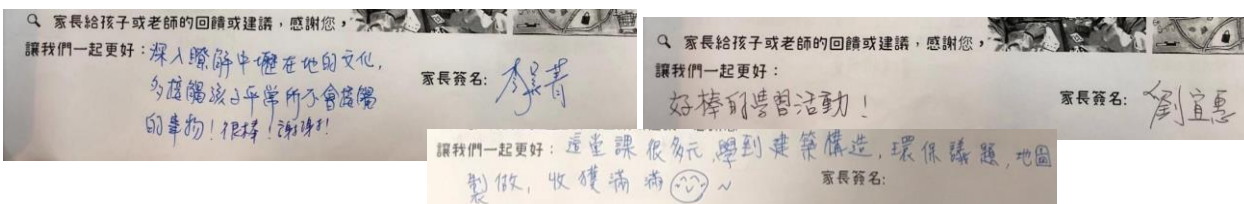 家長給孩子或老師的回饋或建議，感謝您，
讓我們一起更好：深入瞭解中壢在地的文化,
多接觸孩子平常所不會接觸
的事物！很棒！謝謝！
家長簽名:
家長給孩子或老師的回饋或建議，感謝您，
讓我們一起更好：
好棒的學習活動！
家長簽名: 劉宜惠
讓我們一起更好：這堂課很多元,學到建築構造,環保議題,地圖
製做,收獲滿滿~
家長簽名: